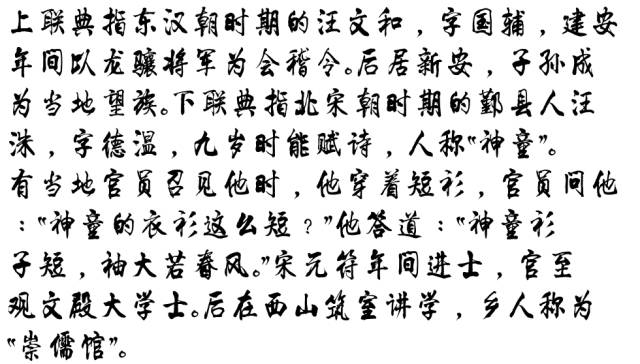 上联典指东汉朝时期的汪文和，字国辅，建安
年间以龙骧将军为会稽令。后居新安，子孙成
为当地望族。下联典指北宋朝时期的鄞县人汪
洙，字德温，九岁时能赋诗，人称“神童”。
有当地官员召见他时，他穿着短衫，官员问他
：“神童的衣衫这么短？”他答道：“神童衫
子短，袖大若春风。”宋元符年间进士，官至
观文殿大学士。后在西山筑室讲学，乡人称为
“崇儒馆”。